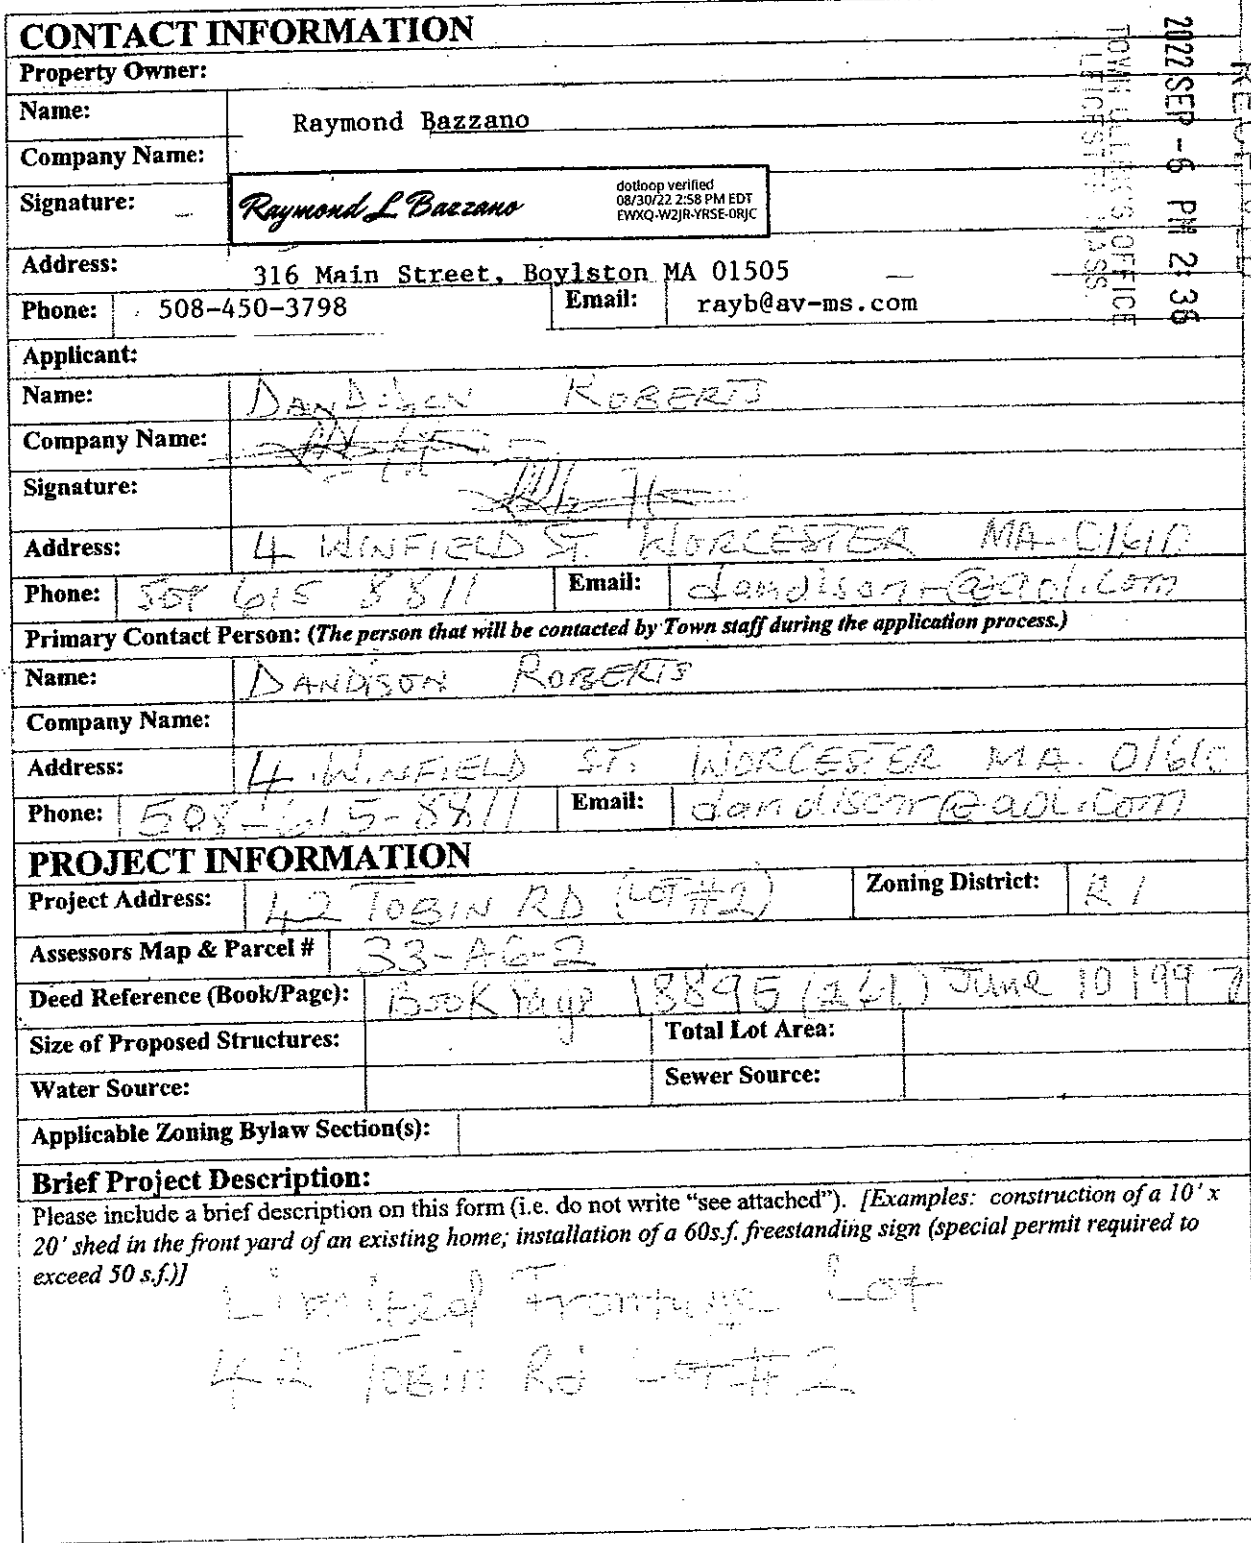 CONTACT INFORMATION
Property Owner:
Name: Raymond Bazzano
Company Name:
Signature: Raymond L Bazzano dotloop verified
08/30/22 2:58 PM EDT
EWXQ-W2JR-YRSE-0RJC
Address: 316 Main Street, Boylston MA 01505
Phone: 508-450-3798 Email: rayb@av-ms.com
RECEIVED
2022 SEP -6 PM 2:36
TOWN CLERK'S OFFICE
LEICESTER, MASS.
Applicant:
Name: DANDISON ROBERTS
Company Name:
Signature:
Address: 4 WINFIELD ST WORCESTER MA 01610
Phone: 508 615 8811 Email: dandisonr@aol.com
Primary Contact Person: (The person that will be contacted by Town staff during the application process.)
Name: DANDISON ROBERTS
Company Name:
Address: 4 WINFIELD ST. WORCESTER MA. 01610
Phone: 508-615-8811 Email: dandisonr@aol.com
PROJECT INFORMATION
Project Address: 42 TOBIN RD (LOT#2) Zoning District: R1
Assessors Map & Parcel # 33-A6-2
Deed Reference (Book/Page): Book Page 18895 June 10 199
Size of Proposed Structures: Total Lot Area:
Water Source: Sewer Source:
Applicable Zoning Bylaw Section(s):
Brief Project Description:
Please include a brief description on this form (i.e. do not write "see attached"). [Examples: construction of a 10' x
20' shed in the front yard of an existing home; installation of a 60s.f. freestanding sign (special permit required to
exceed 50 s.f.)]
Limited Frontage Lot
42 TOBIN Rd LOT#2